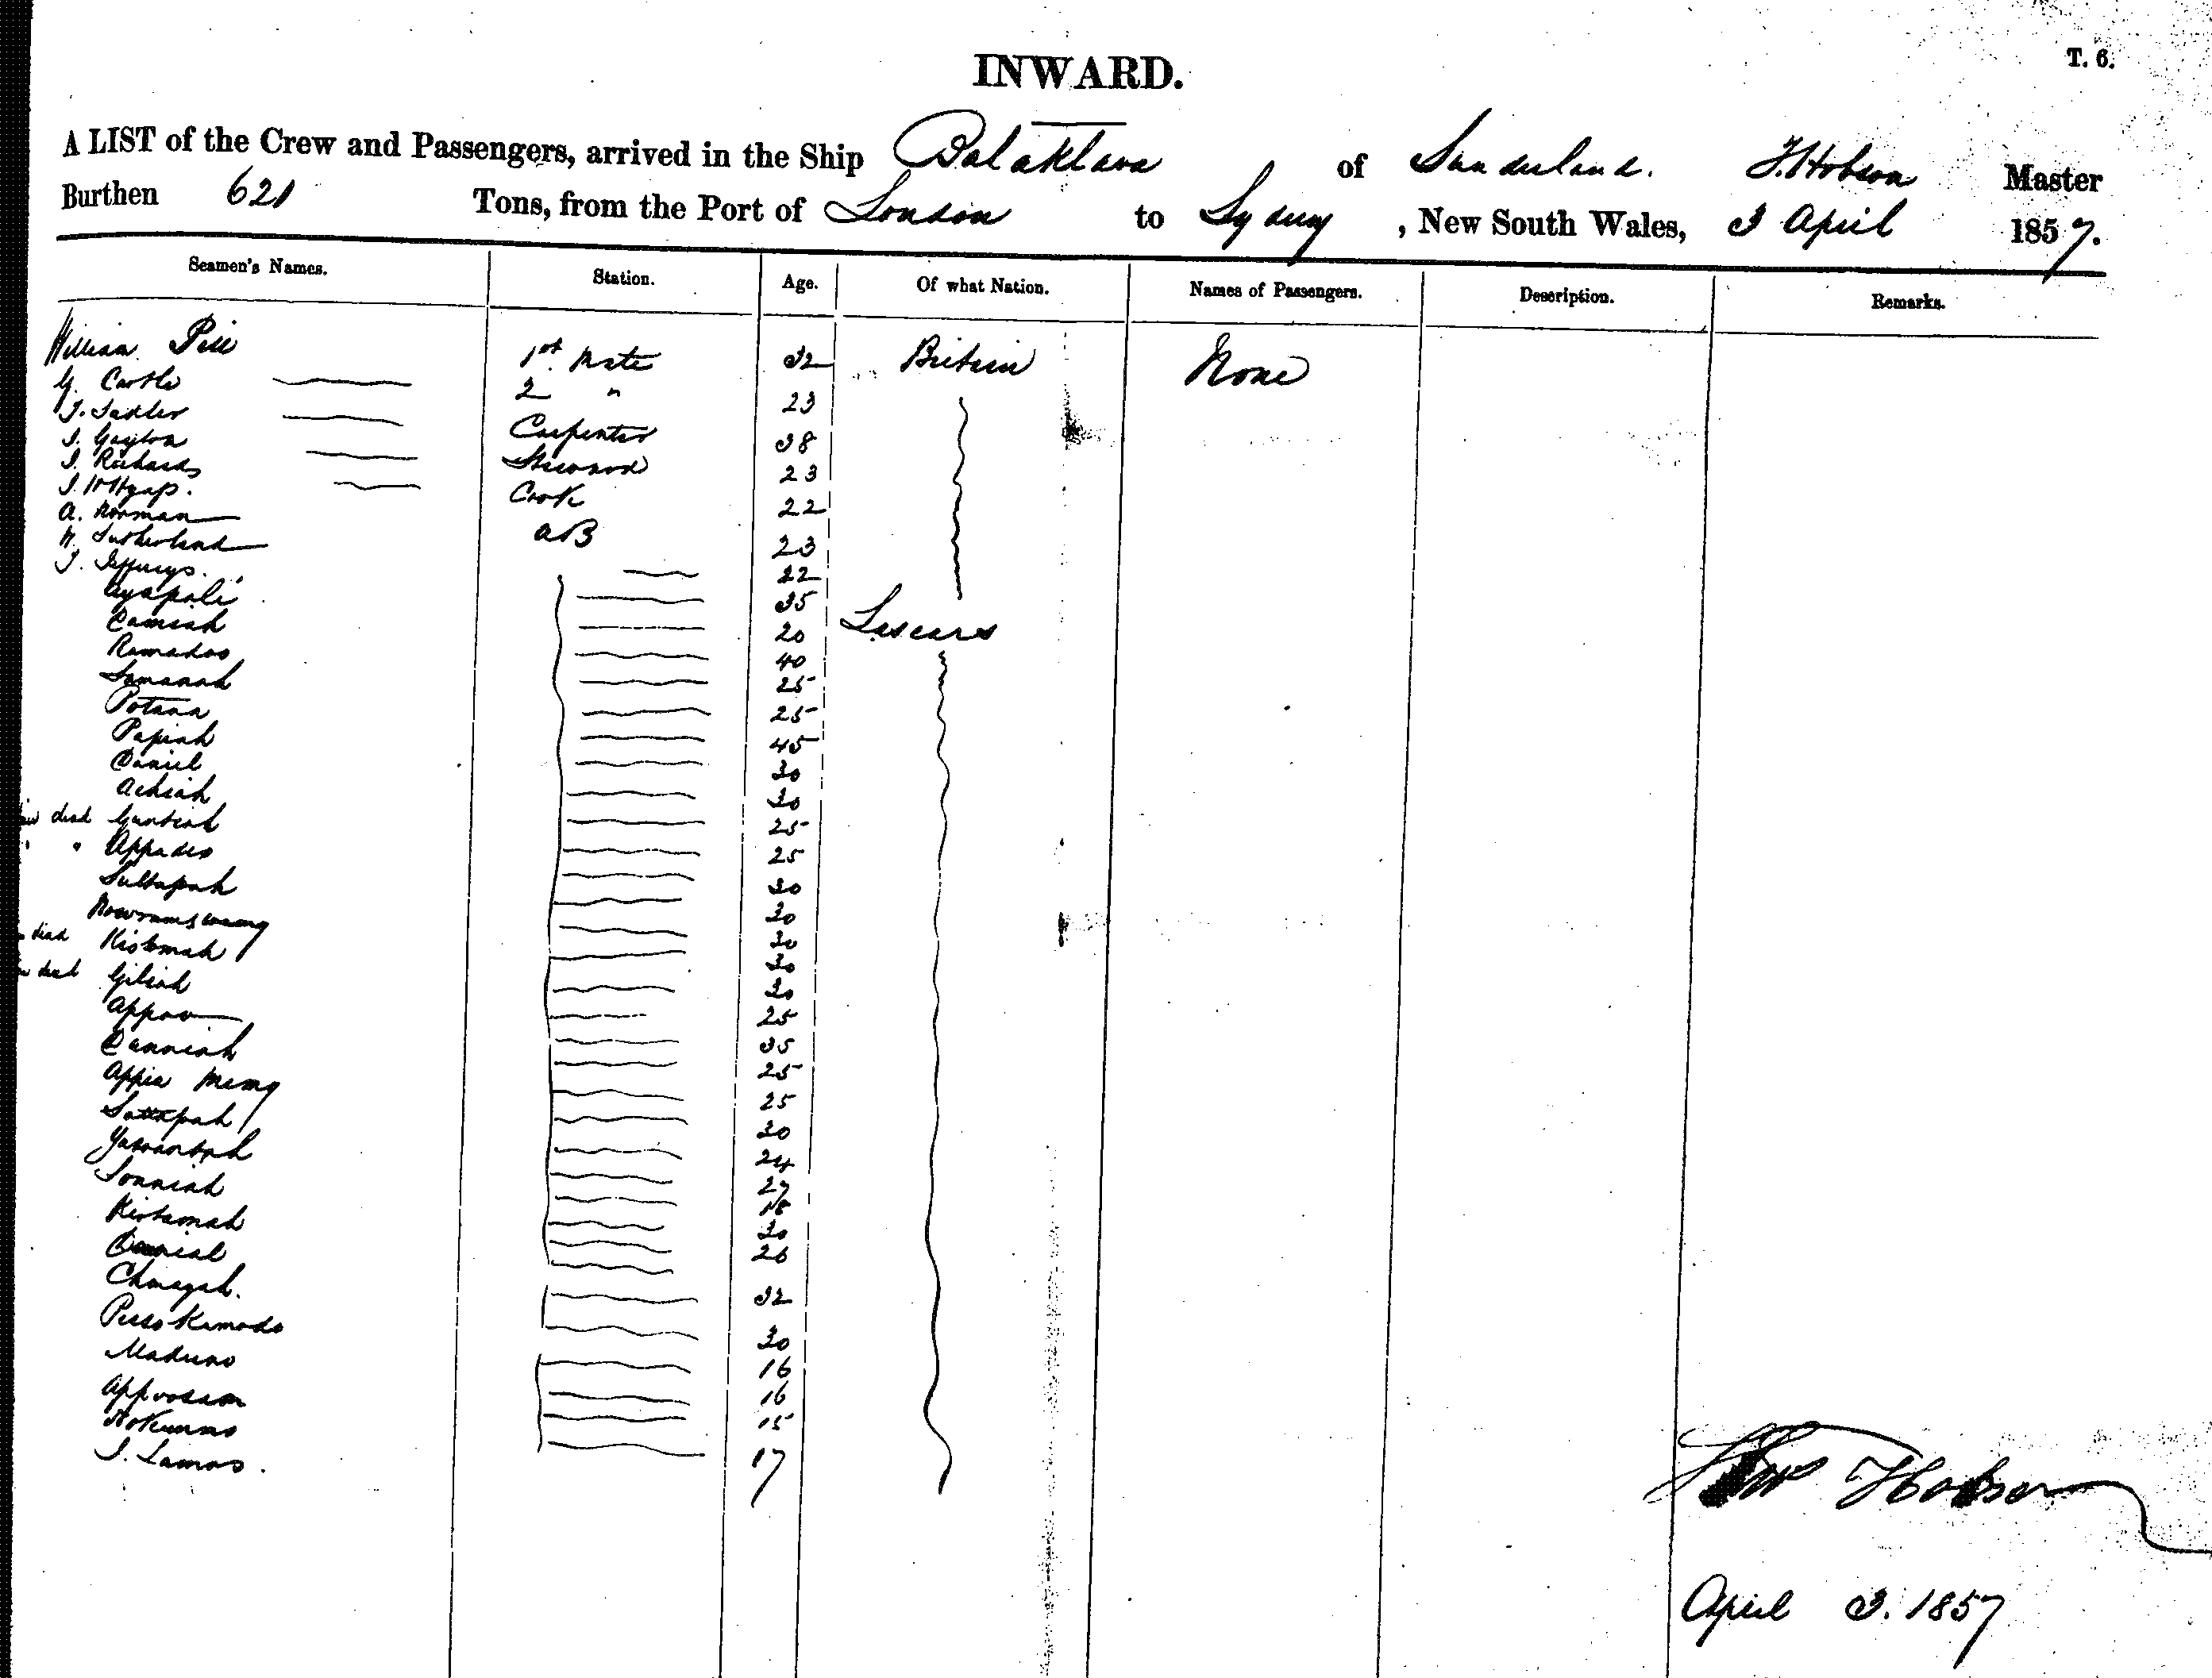 INWARD.
T. 6.
A LIST of the Crew and Passengers, arrived in the Ship Balaklava of Sunderland. T. Hobson Master
Burthen 621 Tons, from the Port of London to Sydney, New South Wales, 3 April 1857.
Seamen's Names. Station. Age. Of what Nation. Names of Passengers. Description. Remarks.
William Pile 1st Mate 32 Britain None
G. Castle 2 " 23
J. Sadler Carpenter 38
J. Gayton Steward 23
J. Richards Cook 22
AB 23
A. Norman 22
W. Sutherland 35
J. Jefferys. 20 Lascars
Ayapoli 40
Camiah 25
Ramadoo 25
Samanah 45
Potana 30
Papiah 30
Daniel 25
Achiah 25
dead Guntiah 30
" Appadeo 30
Sultapah 30
30
dead Kistomah 30
dead Giliah 25
Appao 35
Canniah 25
Appia 25
Sattapah 30
24
Sonniah 27
Kistamah 18
Danial 30
26
32
Maduno 30
16
16
15
J. Lamos. 17
Hobson
April 3. 1857